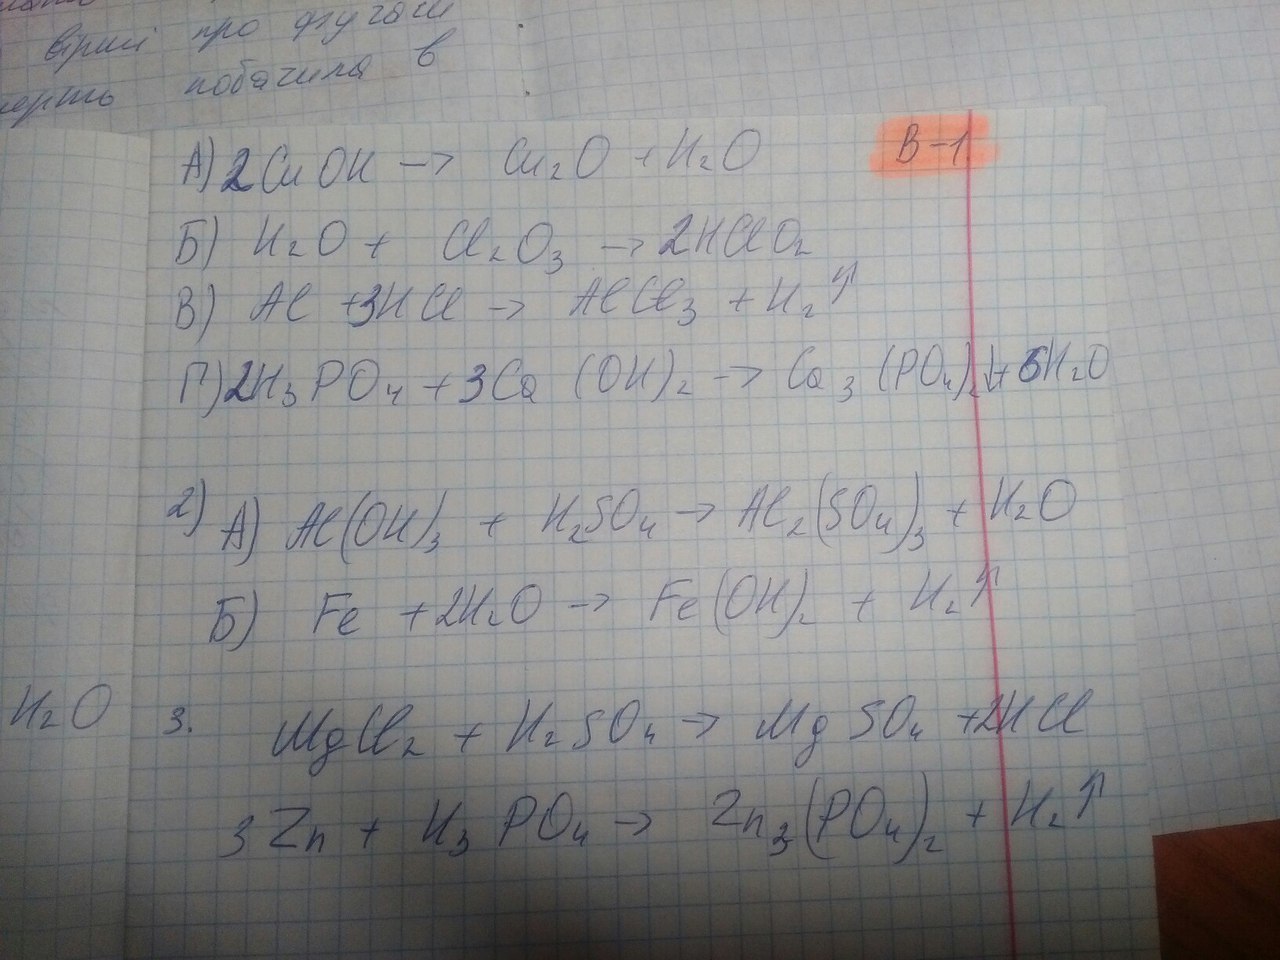 вірші про
побачила в
В-1
А) 2CuOH → Cu₂O + H₂O
Б) H₂O + Cl₂O₃ → 2HClO₂
В) Al + 3HCl → AlCl₃ + H₂↑
Г) 2H₃PO₄ + 3Ca(OH)₂ → Ca₃(PO₄)₂↓ + 6H₂O
2) А) Al(OH)₃ + H₂SO₄ → Al₂(SO₄)₃ + H₂O
Б) Fe + 2H₂O → Fe(OH)₂ + H₂↑
H₂O
3. MgCl₂ + H₂SO₄ → MgSO₄ + 2HCl
3Zn + H₃PO₄ → Zn₃(PO₄)₂ + H₂↑